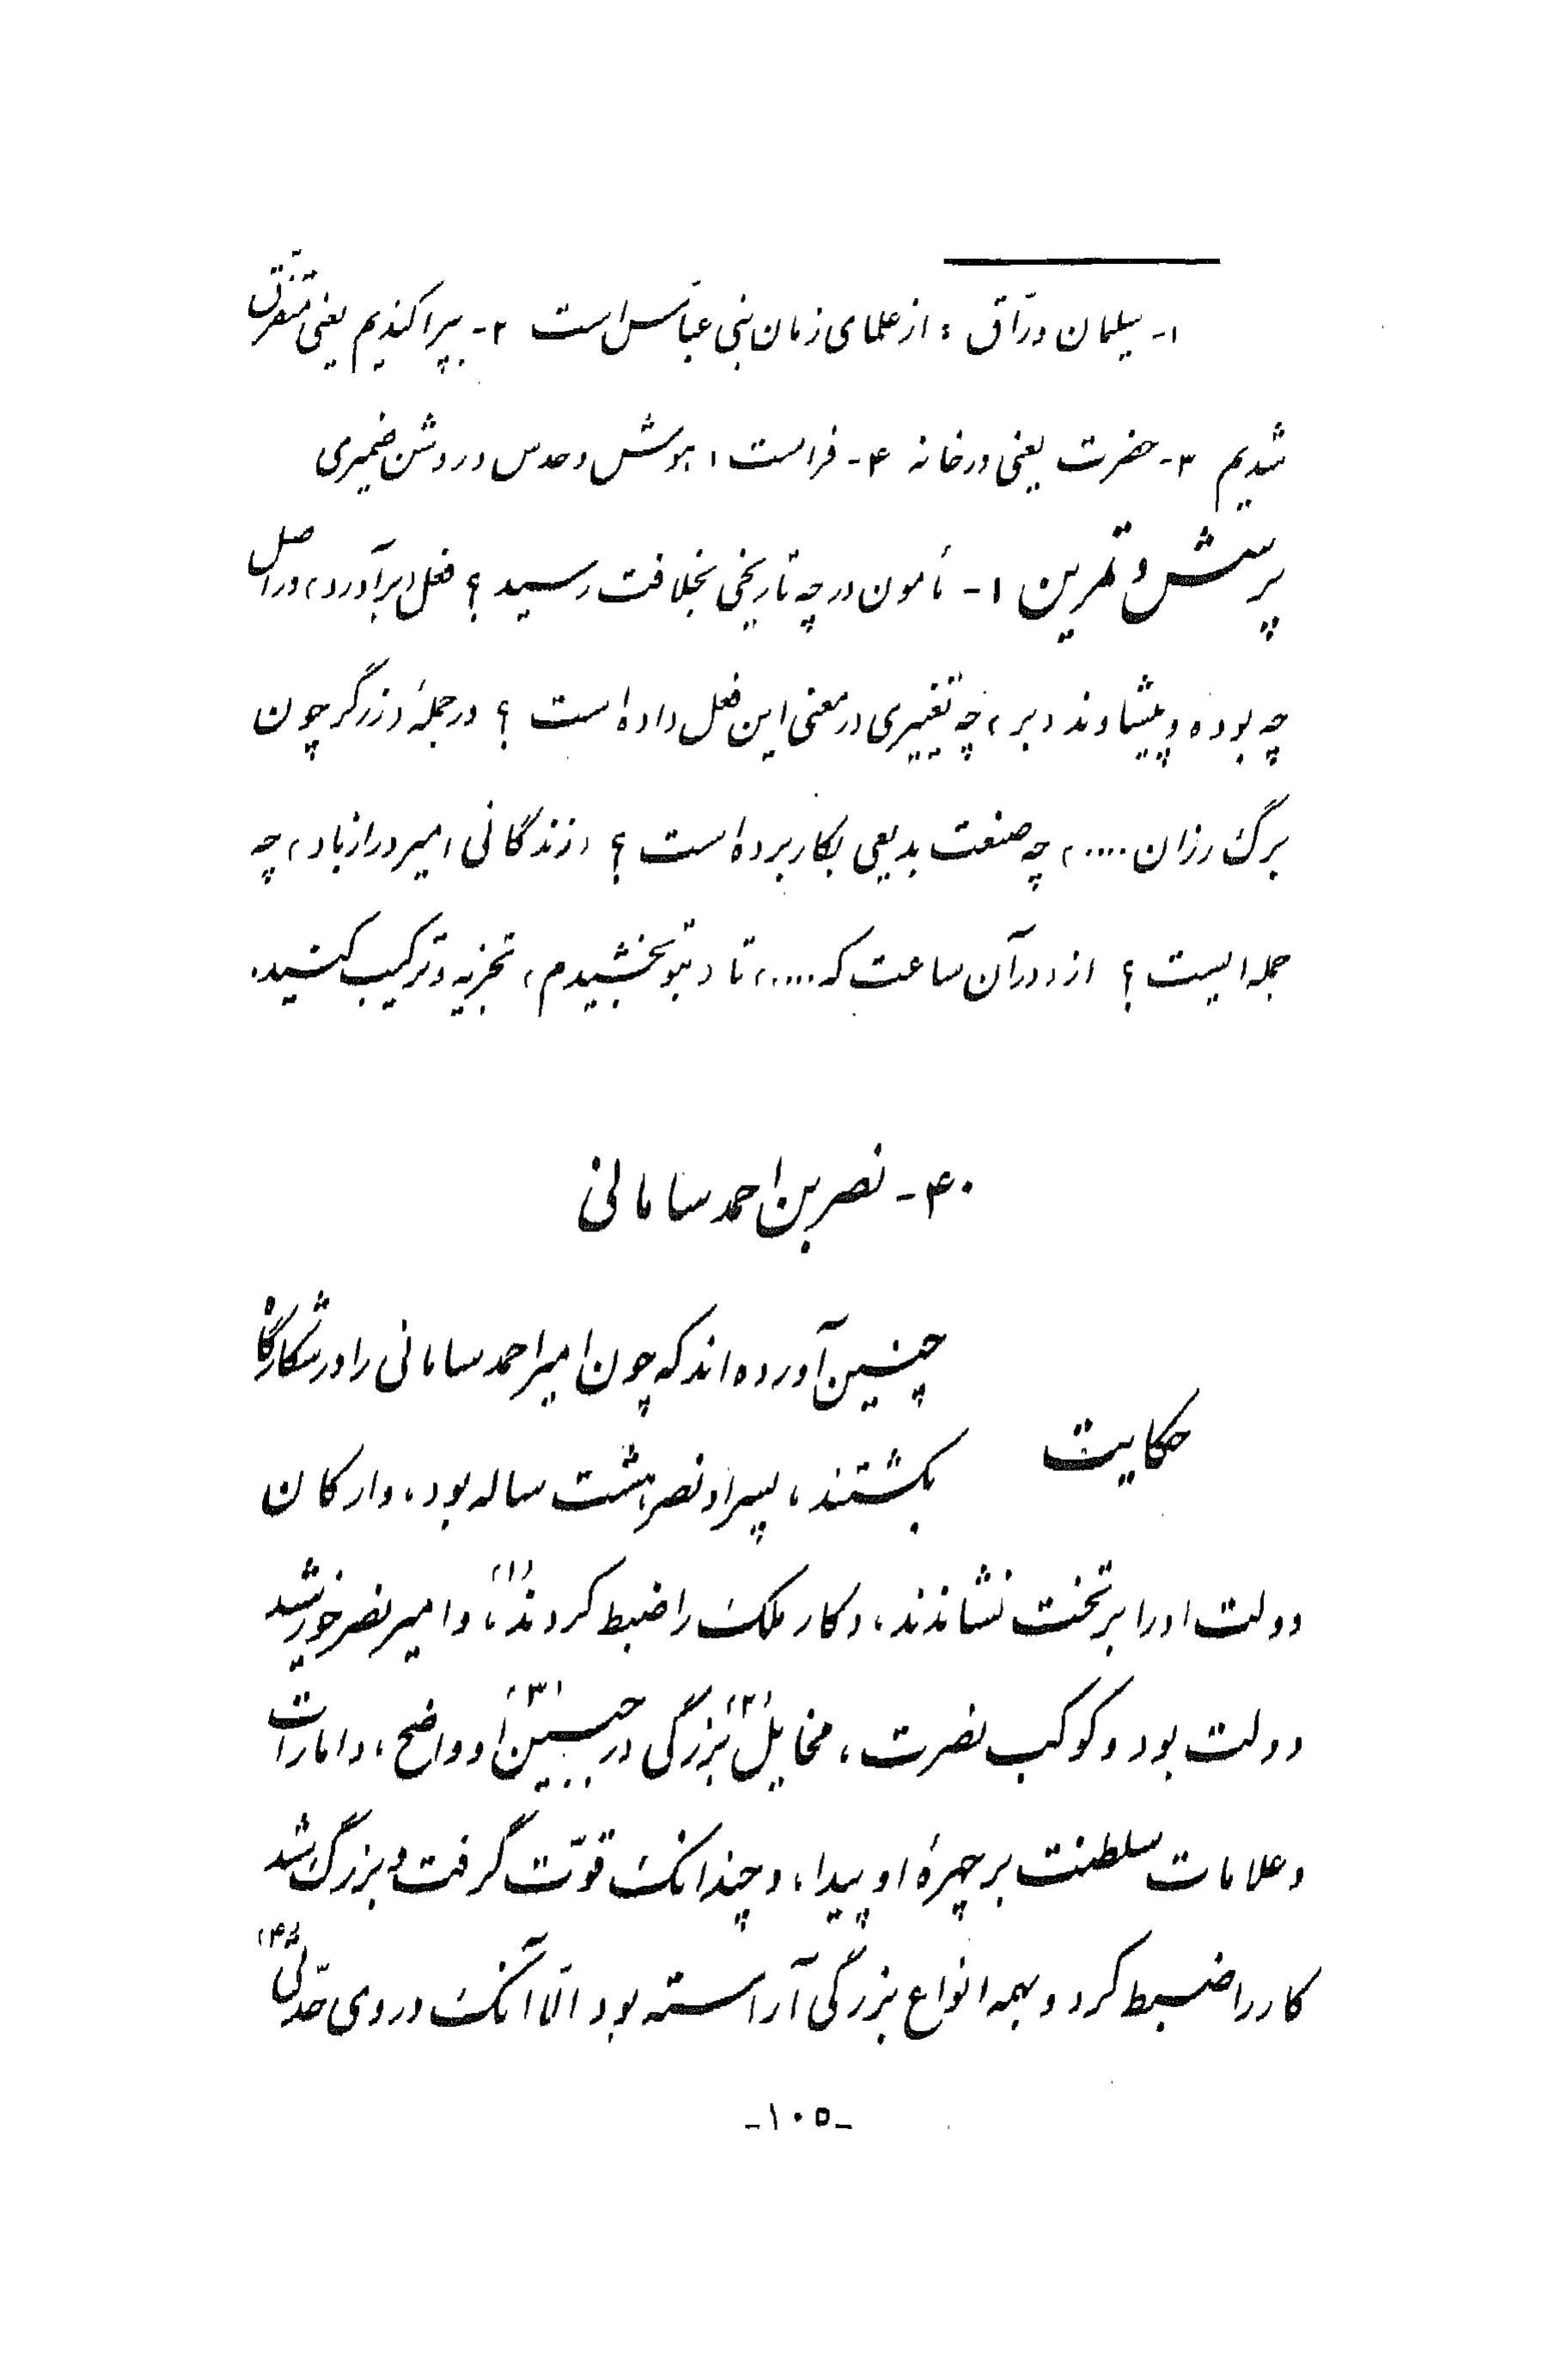 ۱- سلیمان ورّاق : از علمای زمان بنی عبّاس است ۲- بپراکندیم یعنی متفرّق
شدیم ۳- حضرت یعنی درخانه ۴- فراست : هوش و حدس و روشن ضمیری
پرسش و تمرین ۱- مأمون در چه تاریخی بخلافت رسید ؟ فعل «برآورد» در اصل
چه بوده و پیشاوند «بر» چه تغییری در معنی این فعل داده است ؟ در جملهٔ «زر گر چون
برگ رزان ....» چه صنعت بدیعی بکار برده است ؟ «زندگانی امیر دراز باد» چه
جمله ایست ؟ از «در آن ساعت که ....» تا «بتو بخشیدم» تجزیه و ترکیب کنید.
۴۰- نصر بن احمد سامانی
حکایت
چنین آورده اند که چون امیر احمد سامانی را در شکارگاه
بکشتند ، پسر او نصر هشت ساله بود ، و ارکان
دولت او را بر تخت نشاندند ، و کار ملک را ضبط کردند (۱) ، و امیر نصر خورشید
دولت بود و کوکب نصرت ، مخایل (۲) بزرگی در جبین (۳) او واضح ، و امارات
و علامات سلطنت بر چهرهٔ او پیدا ، و چندانک قوّت گرفت و بزرگ شد
کار را ضبط کرد و بهمه انواع بزرگی آراسته بود الّا آنک در وی حدّتی (۴)
-۱۰۵-